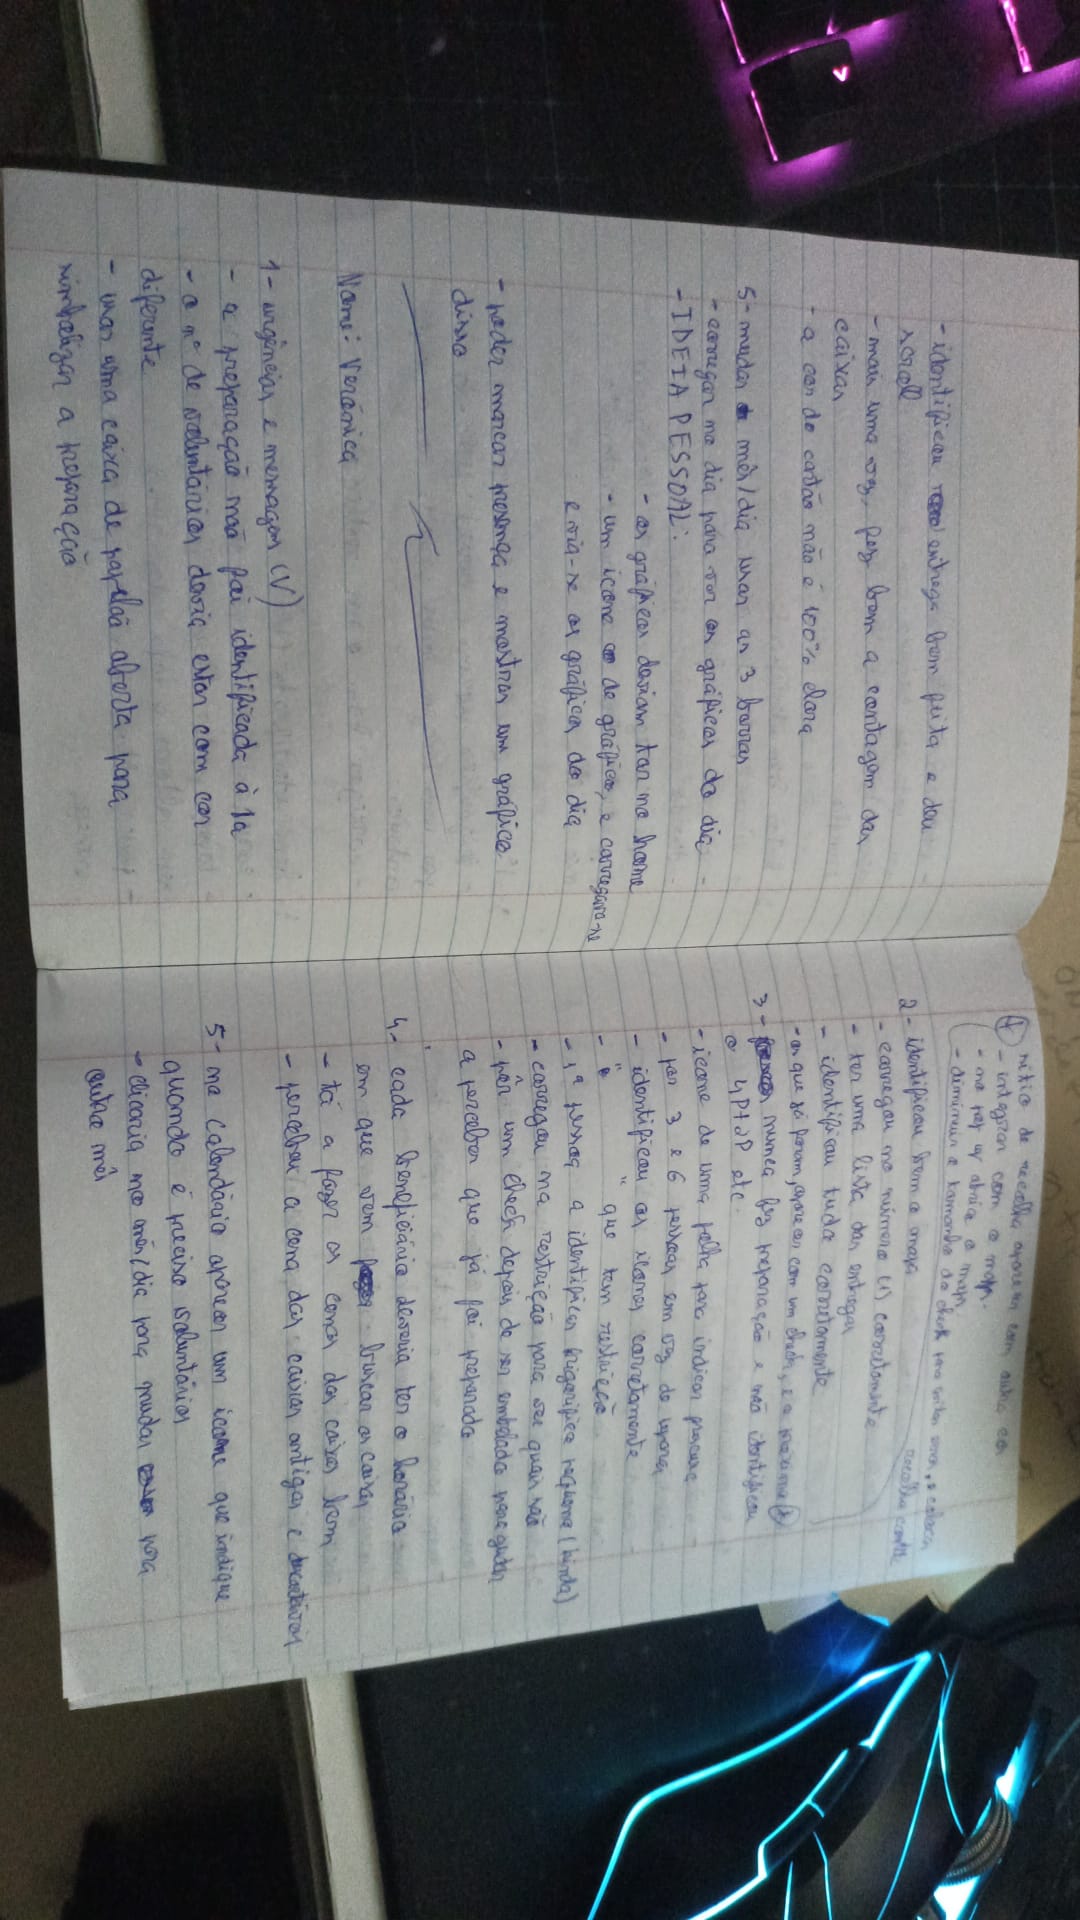 - identificou entrega bem feita e deu
scroll
- mais uma vez, fez bem a contagem das
caixas
- a cor do cartão não é 100% clara
5- mudar mês/dia usar as 3 barras
- carregar no dia para ver os gráficos do dia
- IDEIA PESSOAL:
- os gráficos deviam tar no home
- um icone de gráfico, e carregava-se
e via-se os gráficos do dia
- poder marcar presença e mostrar um gráfico
disso
Nome: Verónica
1- urgências e mensagem (V)
- a preparação não foi identificada à 1a
- o nº de voluntários devia estar com cor
diferente
- usar uma caixa de papelão aberta para
simbolizar a preparação
sitio de recolha aparecer com outra cor
- integrar com o mapa
- no pop up abria o mapa
- diminuir o tamanho do check para
recolha
2- identificou bem o mapa
- carregou no número (s) corretamente
- ter uma lista das entregas
- identificou tudo corretamente
- os que já foram, aparecer com um check, e o próximo
3- nunca fez preparação e não identificou
o 4P + 2P etc.
- icone de uma folha para indicar
- por 3 e 6 pessoas em vez de
- identificou os icones corretamente
- " " que tem restrição
- a pessoa a identificar frigorifico pequeno (linda)
- carregou na restrição para ver quais são
- pôr um check depois de ser embalado para ajudar
a perceber que já foi preparado
4- cada beneficiário deveria ter o horário
em que vem buscar as caixas
- tá a fazer as cores das caixas bem
- percebeu a cena das caixas antigas e
5- no calendário aparecer um icone que indique
quando é preciso voluntários
- clicaria no mês/dia para mudar para
outro mês